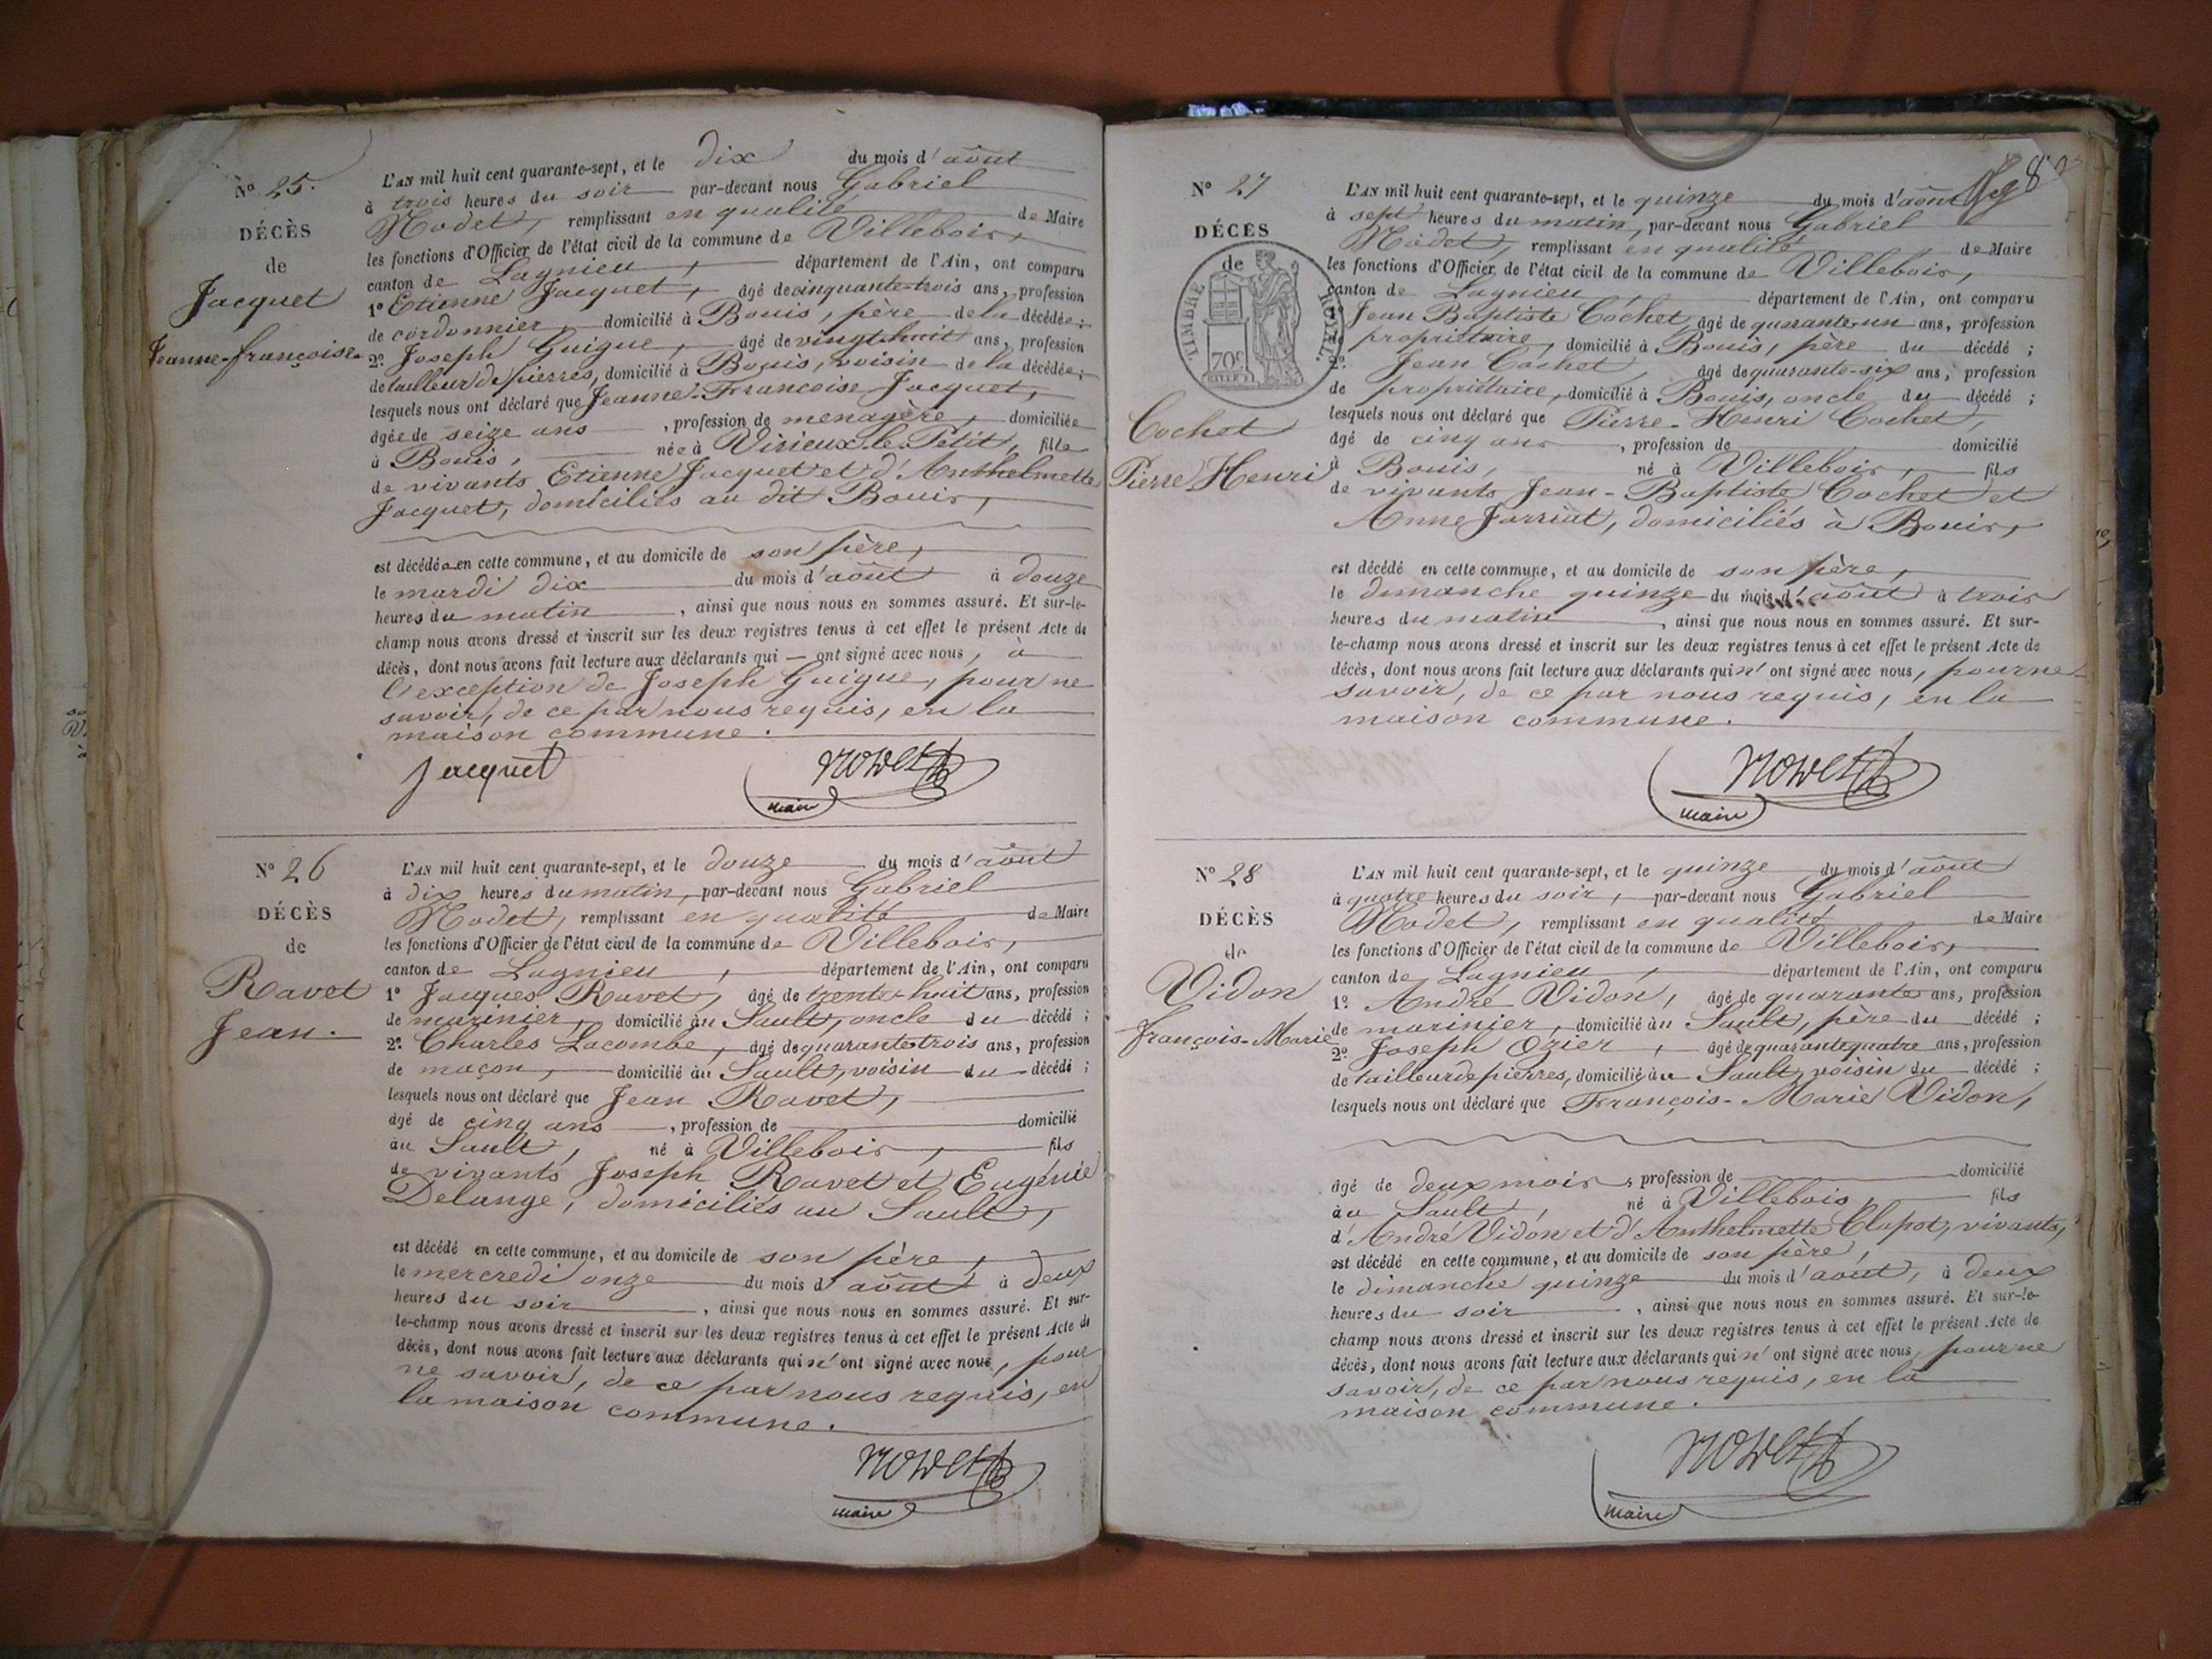 N° 25.
DÉCÈS
de
Jacquet
Jeanne-françoise.
L'AN mil huit cent quarante-sept, et le dix du mois d'août
à trois heures du soir par-devant nous Gabriel
Nodet, remplissant en qualité de Maire
les fonctions d'Officier de l'état civil de la commune de Villebois,
canton de Lagnieu, département de l'Ain, ont comparu
1° Etienne Jacquet, âgé de cinquante-trois ans, profession
de cordonnier, domicilié à Bouis, père de la décédée;
2° Joseph Guigue, âgé de vingt-huit ans, profession
de tailleur de pierres, domicilié à Bouis, voisin de la décédée;
lesquels nous ont déclaré que Jeanne-Francoise Jacquet,
âgée de seize ans, profession de menagère, domiciliée
à Bouis, née à Virieux-le-Petit, fille
de vivants Etienne Jacquet et d'Anthelmette
Jacquet, domiciliés au dit Bouis,
est décédée en cette commune, et au domicile de son père,
le mardi dix du mois d'août à douze
heures du matin, ainsi que nous nous en sommes assuré. Et sur-le-
champ nous avons dressé et inscrit sur les deux registres tenus à cet effet le présent Acte de
décès, dont nous avons fait lecture aux déclarants qui — ont signé avec nous, à
l'exception de Joseph Guigue, pour ne
savoir, de ce par nous requis, en la
maison commune.
Jacquet Nodet
maire
N° 26
DÉCÈS
de
Ravet
Jean.
L'AN mil huit cent quarante-sept, et le douze du mois d'août
à dix heures du matin, par-devant nous Gabriel
Nodet, remplissant en qualité de Maire
les fonctions d'Officier de l'état civil de la commune de Villebois,
canton de Lagnieu, département de l'Ain, ont comparu
1° Jacques Ravet, âgé de trente-huit ans, profession
de marinier, domicilié au Sault, oncle du décédé;
2° Charles Lacombe, âgé de quarante-trois ans, profession
de maçon, domicilié au Sault, voisin du décédé;
lesquels nous ont déclaré que Jean Ravet,
âgé de cinq ans, profession de domicilié
au Sault, né à Villebois, fils
de vivants Joseph Ravet et Eugénie
Delange, domiciliés au Sault,
est décédé en cette commune, et au domicile de son père,
le mercredi onze du mois d'août à deux
heures du soir, ainsi que nous nous en sommes assuré. Et sur-
le-champ nous avons dressé et inscrit sur les deux registres tenus à cet effet le présent Acte de
décès, dont nous avons fait lecture aux déclarants qui n'ont signé avec nous, pour
ne savoir, de ce par nous requis, en
la maison commune.
Nodet
maire
N° 27
DÉCÈS
de
TIMBRE ROYAL.
70c
Cochet
Pierre Henri
L'AN mil huit cent quarante-sept, et le quinze du mois d'août
à sept heures du matin, par-devant nous Gabriel
Nodet, remplissant en qualité de Maire
les fonctions d'Officier de l'état civil de la commune de Villebois,
canton de Lagnieu, département de l'Ain, ont comparu
Jean Baptiste Cochet, âgé de quarante-un ans, profession
propriétaire, domicilié à Bouis, père du décédé;
2° Jean Cochet, âgé de quarante-six ans, profession
de propriétaire, domicilié à Bouis, oncle du décédé;
lesquels nous ont déclaré que Pierre-Henri Cochet,
âgé de cinq ans, profession de domicilié
à Bouis, né à Villebois, fils
de vivants Jean-Baptiste Cochet et
Anne Jarriat, domiciliés à Bouis,
est décédé en cette commune, et au domicile de son père,
le dimanche quinze du mois d'août à trois
heures du matin, ainsi que nous nous en sommes assuré. Et sur-
le-champ nous avons dressé et inscrit sur les deux registres tenus à cet effet le présent Acte de
décès, dont nous avons fait lecture aux déclarants qui n'ont signé avec nous, pour ne
savoir, de ce par nous requis, en la
maison commune.
Nodet
maire
N° 28
DÉCÈS
de
Vidon
françois-Marie
L'AN mil huit cent quarante-sept, et le quinze du mois d'août
à quatre heures du soir, par-devant nous Gabriel
Nodet, remplissant en qualité de Maire
les fonctions d'Officier de l'état civil de la commune de Villebois,
canton de Lagnieu, département de l'Ain, ont comparu
1° André Vidon, âgé de quarante ans, profession
de marinier, domicilié au Sault, père du décédé;
2° Joseph Ozier, âgé de quarante quatre ans, profession
de tailleur de pierres, domicilié au Sault, voisin du décédé;
lesquels nous ont déclaré que François-Marie Vidon,
âgé de deux mois, profession de domicilié
au Sault, né à Villebois, fils
d'André Vidon et d'Anthelmette Clapot, vivants,
est décédé en cette commune, et au domicile de son père,
le dimanche quinze du mois d'août, à deux
heures du soir, ainsi que nous nous en sommes assuré. Et sur-le-
champ nous avons dressé et inscrit sur les deux registres tenus à cet effet le présent Acte de
décès, dont nous avons fait lecture aux déclarants qui n'ont signé avec nous, pour ne
savoir, de ce par nous requis, en la
maison commune.
Nodet
maire